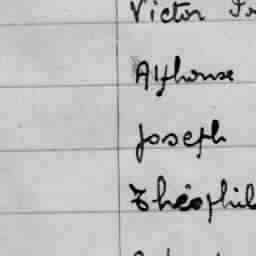 Victor
Alphonse
Joseph
Théophil